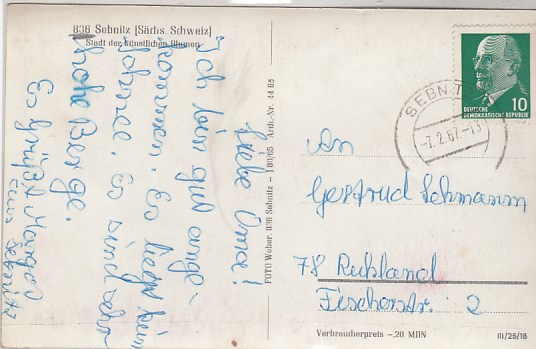 836 Sebnitz [Sächs. Schweiz]
Stadt der künstlichen Blumen
Liebe Oma!
Ich bin gut ange-
kommen. Es liegt kein
Schnee. Es sind sehr
hohe Berge.
Es grüßt Margot
aus Sebnitz
FOTO Weber, 836 Sebnitz – I 80/65 Arch.-Nr. 44 65
DEUTSCHE
DEMOKRATISCHE REPUBLIK
10
SEBNITZ
-7.2.67-13
An
Gertrud Lehmann
78 Ruhland
Fischerstr. 2
Verbraucherpreis -,20 MDN
III/25/18